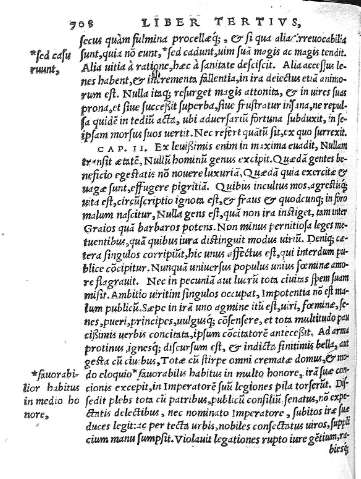 708 LIBER TERTIVS,
secus quàm fulmina procellæq;, & si qua alia irreuocabilia
*sed casu sunt, quia nõ eunt, *sed cadunt, uim suã magis ac magis tendit.
ruunt, Alia uitia à ratione, hæc à sanitate desciscit. Alia accessus le-
nes habent, & incrementa fallentia, in ira deiectus etiã animo-
rum est. Nulla itaq; res urget magis attonita, & in uires suas
prona, et siue successit superba, siue frustratur insana, ne repul-
sa quidẽ in tediũ acta, ubi aduersariũ fortuna subduxit, in se
ipsam morsus suos uertit. Nec refert quãtũ sit, ex quo surrexit.
CAP. II. Ex leuissimis enim in maxima euadit, Nullam
transit ætatẽ, Nullũ hominũ genus excipit. Quædã gentes be-
neficio egestatis nõ nouere luxuriã, Quædã quia exercitæ &
uagæ sunt, effugere pigritiã. Quibus incultus mos, agrestisq;
uita est, circũscriptio ignota est, & fraus & quodcunq; in foro
malum nascitur, Nulla gens est, quã non ira instiget, tam inter
Graios quã barbaros potens. Non minus pernitiosa leges me-
tuentibus, quã quibus iura distinguit modus uiriũ. Deniq; cæ-
tera singulos corripiũt, hic unus affectus est, qui interdum pu-
blice cõcipitur. Nunquã uniuersus populus unius fœminæ amo-
re flagrauit. Nec in pecuniã aut lucrũ tota ciuitas spem suam
misit. Ambitio uiritim singulos occupat, Impotentia nõ est ma-
lum publicũ. Sæpe in irã uno agmine itũ est, uiri, fœminæ, se-
nes, pueri, principes, uulgusq; cõsensere, et tota multitudo pau
cissimis uerbis concitata, ipsum cõcitatorẽ antecessit. Ad arma
protinus, ignesq; discursum est, & indicta finitimis bella, aut
gesta cũ ciuibus, Totæ cũ stirpe omni crematæ domus, & mo-
*fauorabi- do eloquio *fauorabilis habitus in multo honore, irã suæ con-
lior habitus cionis excepit, in Imperatorẽ suũ legiones pila torserũt. Dis-
in medio ho sedit plebs tota cũ patribus, publicũ consiliũ senatus, nõ expe-
nore, ctatis delectibus, nec nominato Imperatore, subitos iræ suæ
duces legit: ac per tecta urbis, nobiles consectatus uiros, suppli
cium manu sumpsit. Violauit legationes rupto iure gẽtium, ra-
biesq;